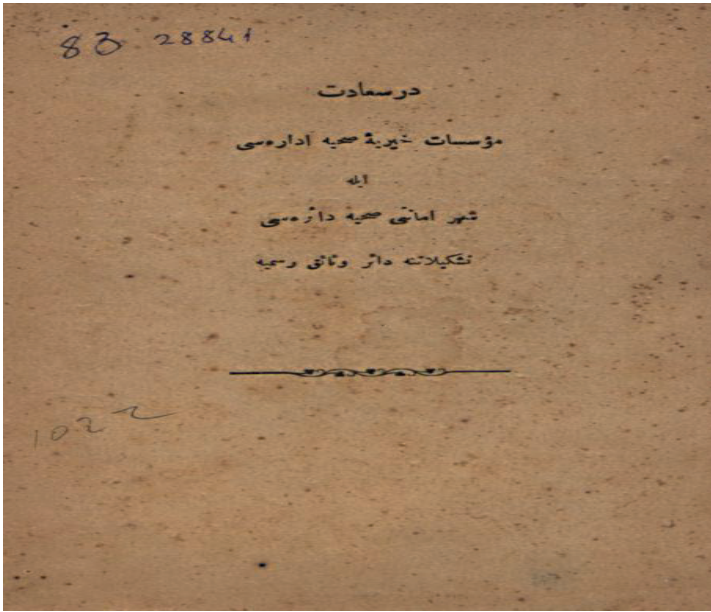 83 28841
در سعادت
مؤسسات خيريۀ صحيه اداره‌سی
ايله
شهر امانتی صحيه دائره‌سی
تشكيلاتنه دائر وثائق رسميه
1022